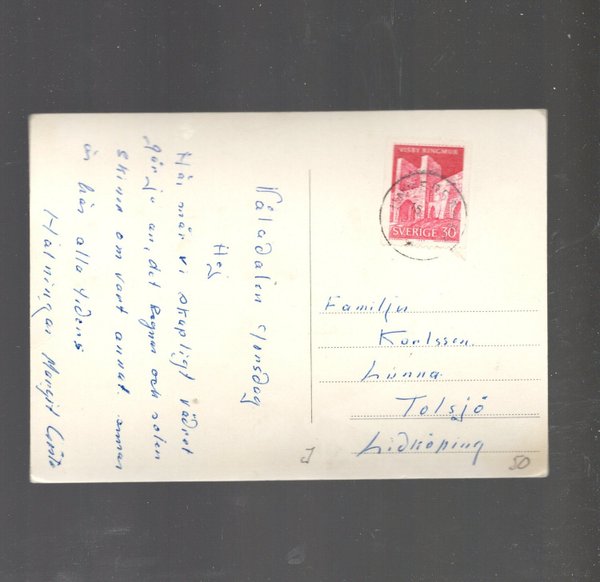 Vålådalen Onsdag
Hej
Här mår vi skapligt vädret
går ju an, det Regnar och solen
skiner om vart annat. annars
är här alla tiders
Hälningar Margit Gösta
VISBY RINGMUR
SVERIGE 30
Familjen
Karlssen
Lunna
Tolsjö
Lidköping
50